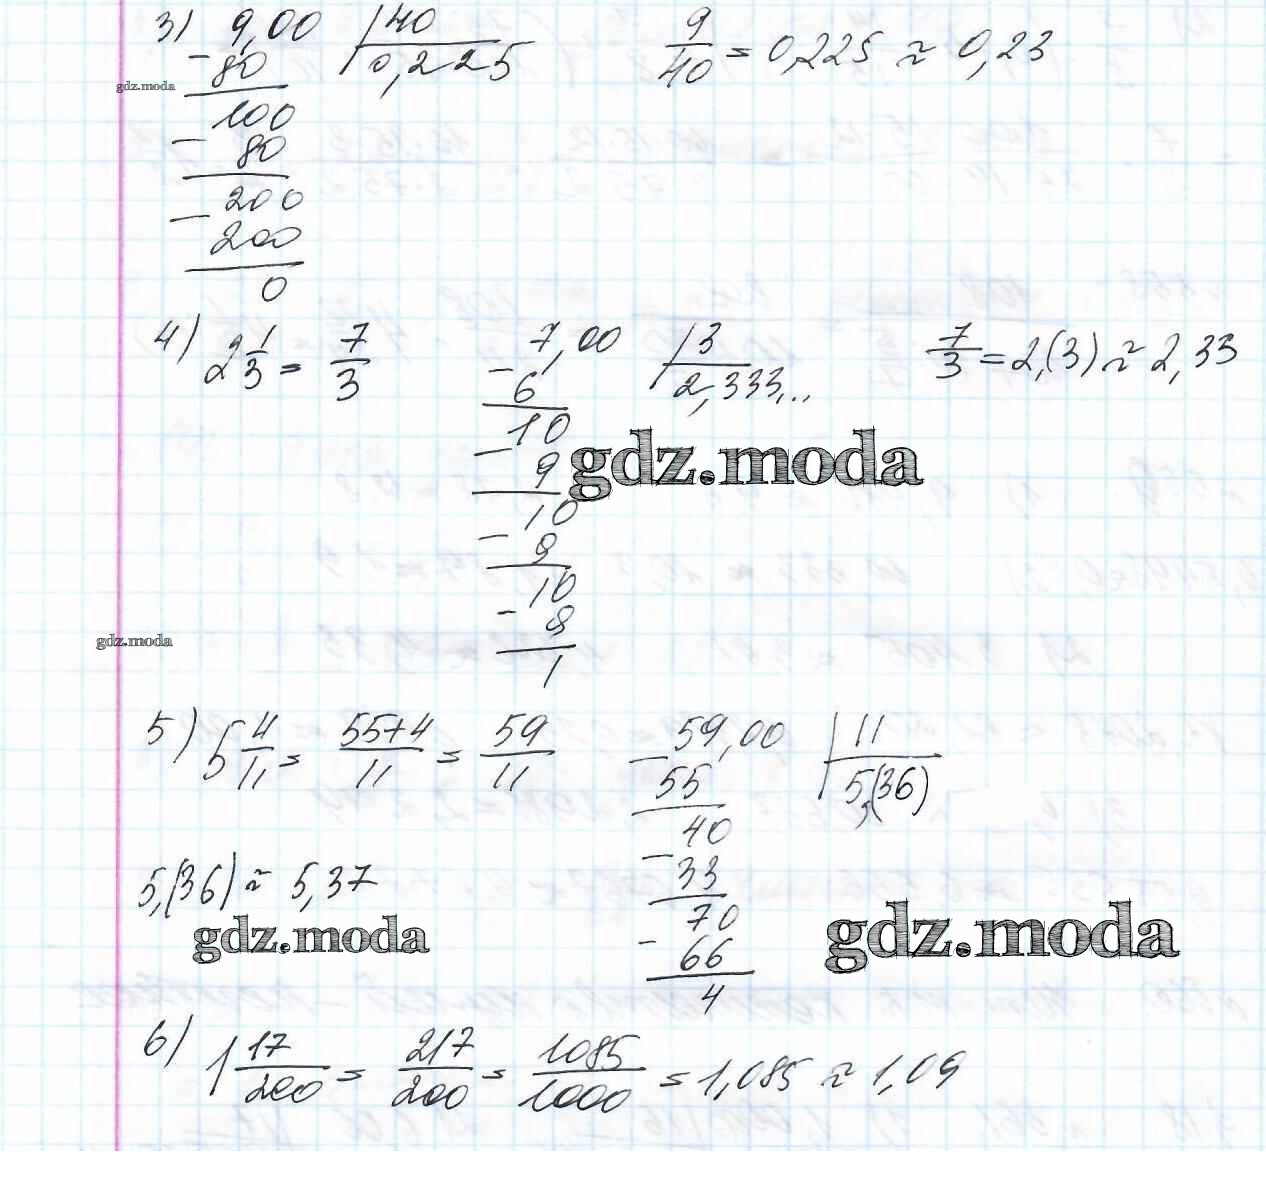 3) 9,00 |40 9/40 = 0,225 ≈ 0,23
- 80 0,225
gdz.moda
100
- 80
200
- 200
0
4) 2 1/3 = 7/3 7,00 |3 7/3 = 2,(3) ≈ 2,33
- 6 2,333...
10
- 9
gdz.moda
10
- 9
10
- 9
gdz.moda
1
5) 5 4/11 = 55+4/11 = 59/11 59,00 |11
- 55 5,(36)
40
5,(36) ≈ 5,37 - 33
70
gdz.moda
- 66
gdz.moda
4
6) 1 17/200 = 217/200 = 1085/1000 = 1,085 ≈ 1,09